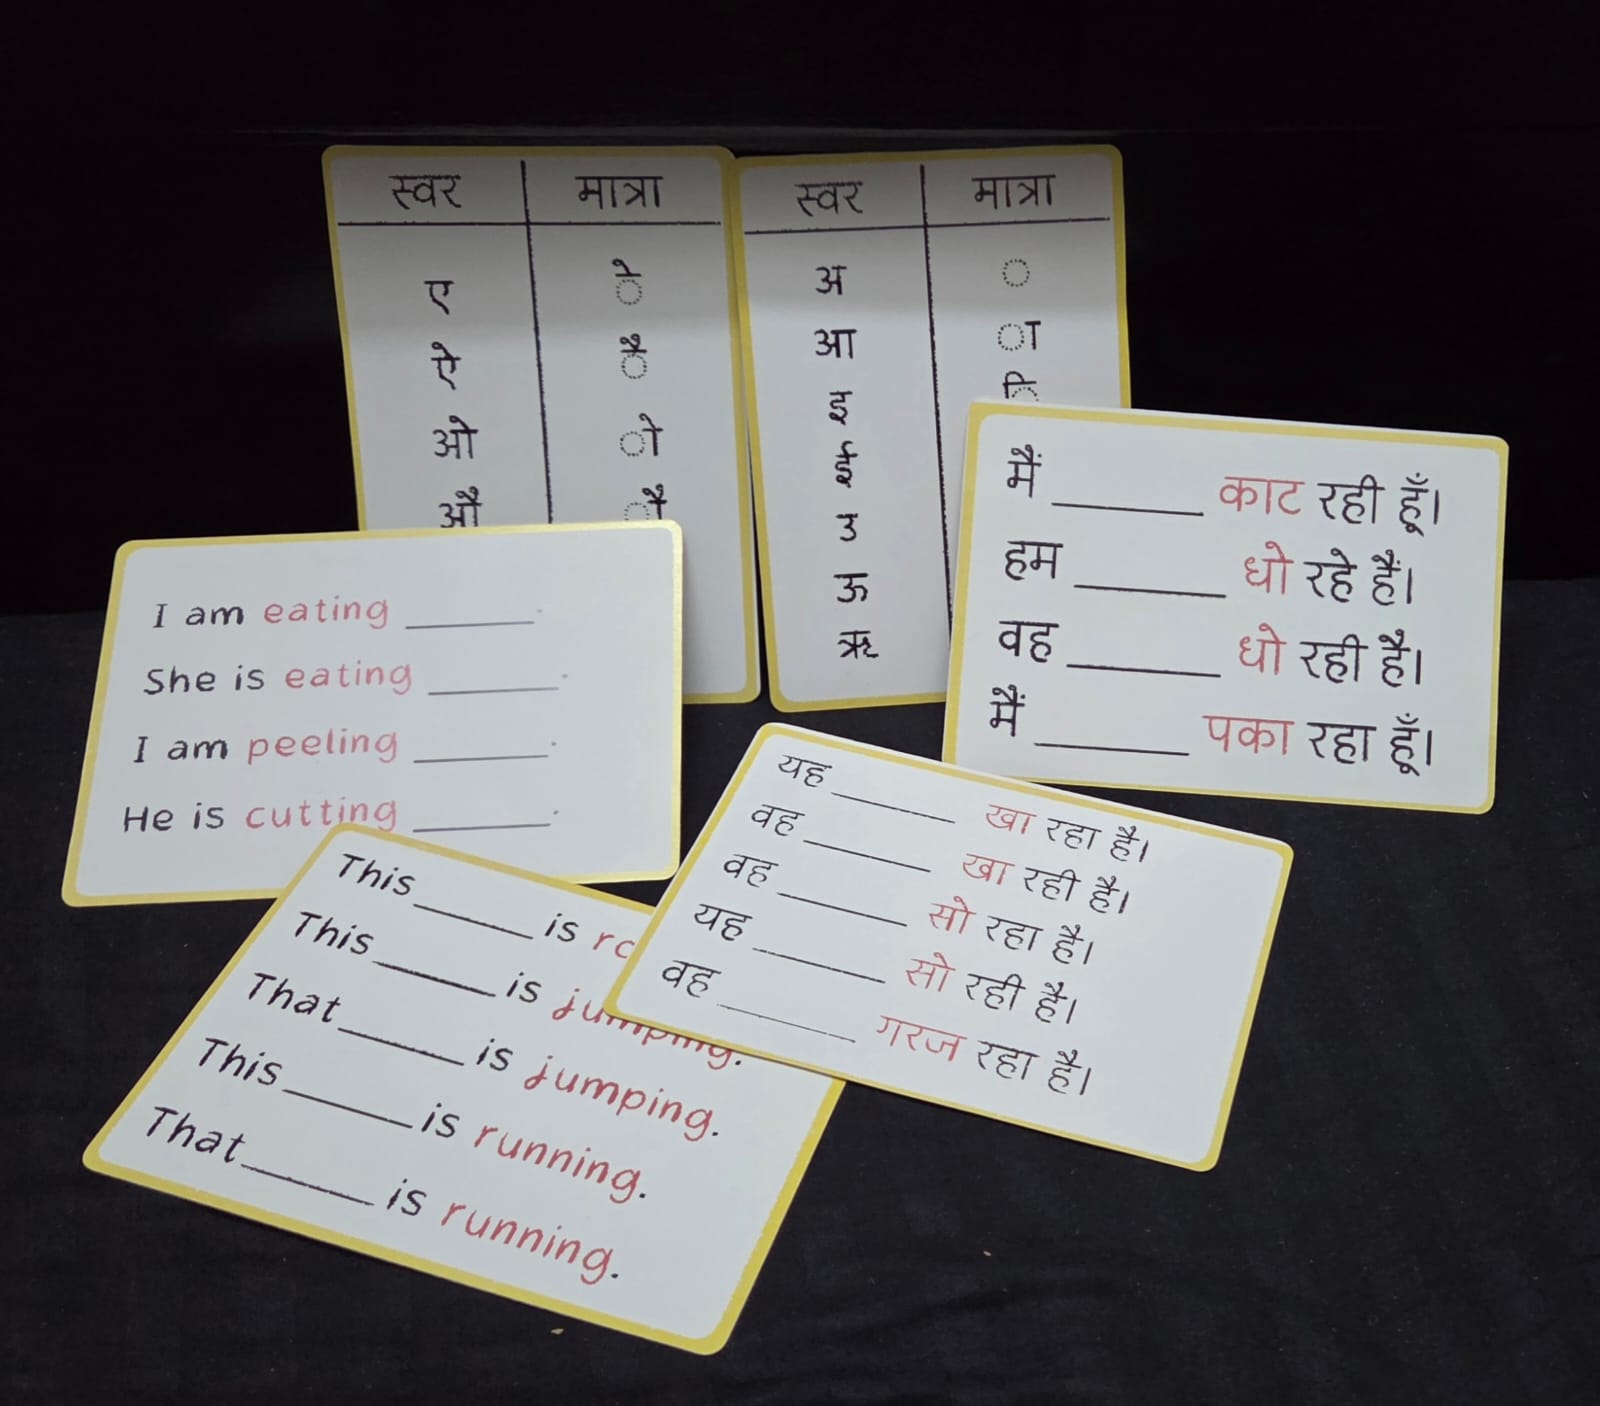 स्वर मात्रा
ए े
ऐ ै
ओ ो
औ ौ
स्वर मात्रा
अ
आ ा
इ ि
ई
उ
ऊ
ऋ
मैं ______ काट रही हूँ।
हम ______ धो रहे हैं।
वह ______ धो रही है।
मैं ______ पका रहा हूँ।
I am eating ______.
She is eating ______.
I am peeling ______.
He is cutting ______.
यह ______ खा रहा है।
वह ______ खा रही है।
वह ______ सो रहा है।
यह ______ सो रही है।
वह ______ गरज रहा है।
This ______ is
This ______ is jumping.
That ______ is jumping.
This ______ is running.
That ______ is running.